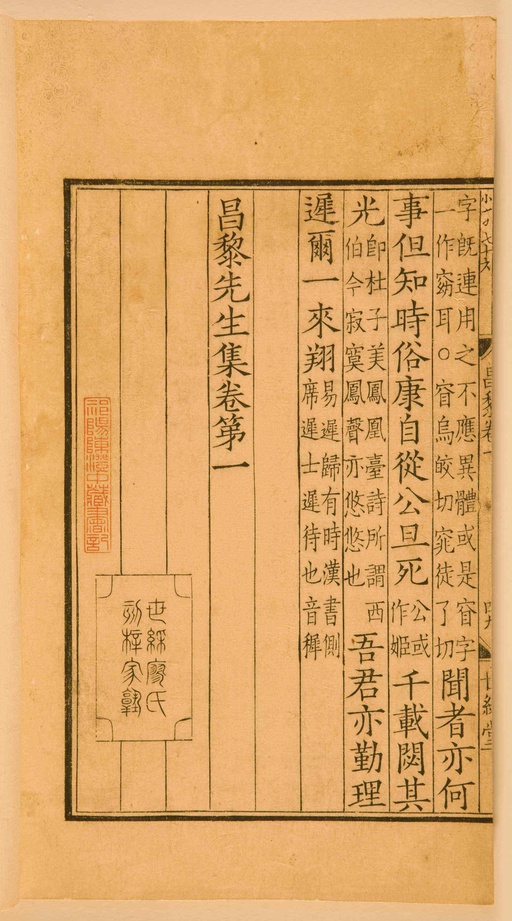 昌黎卷一
世綵堂
字既連用之不應異體或是窅字
一作窈耳○窅烏皎切窕徒了切
聞者亦何
事但知時俗康自從公旦死
公或
作姬
千載閟其
光
即杜子美鳳凰臺詩所謂西
伯今寂寞鳳聲亦悠悠也
吾君亦勤理
遲爾一來翔
易遲歸有時漢書側
席遲士遲待也音稺
昌黎先生集卷第一
世綵廖氏
刻梓家塾
祁陽陳澄中藏書記